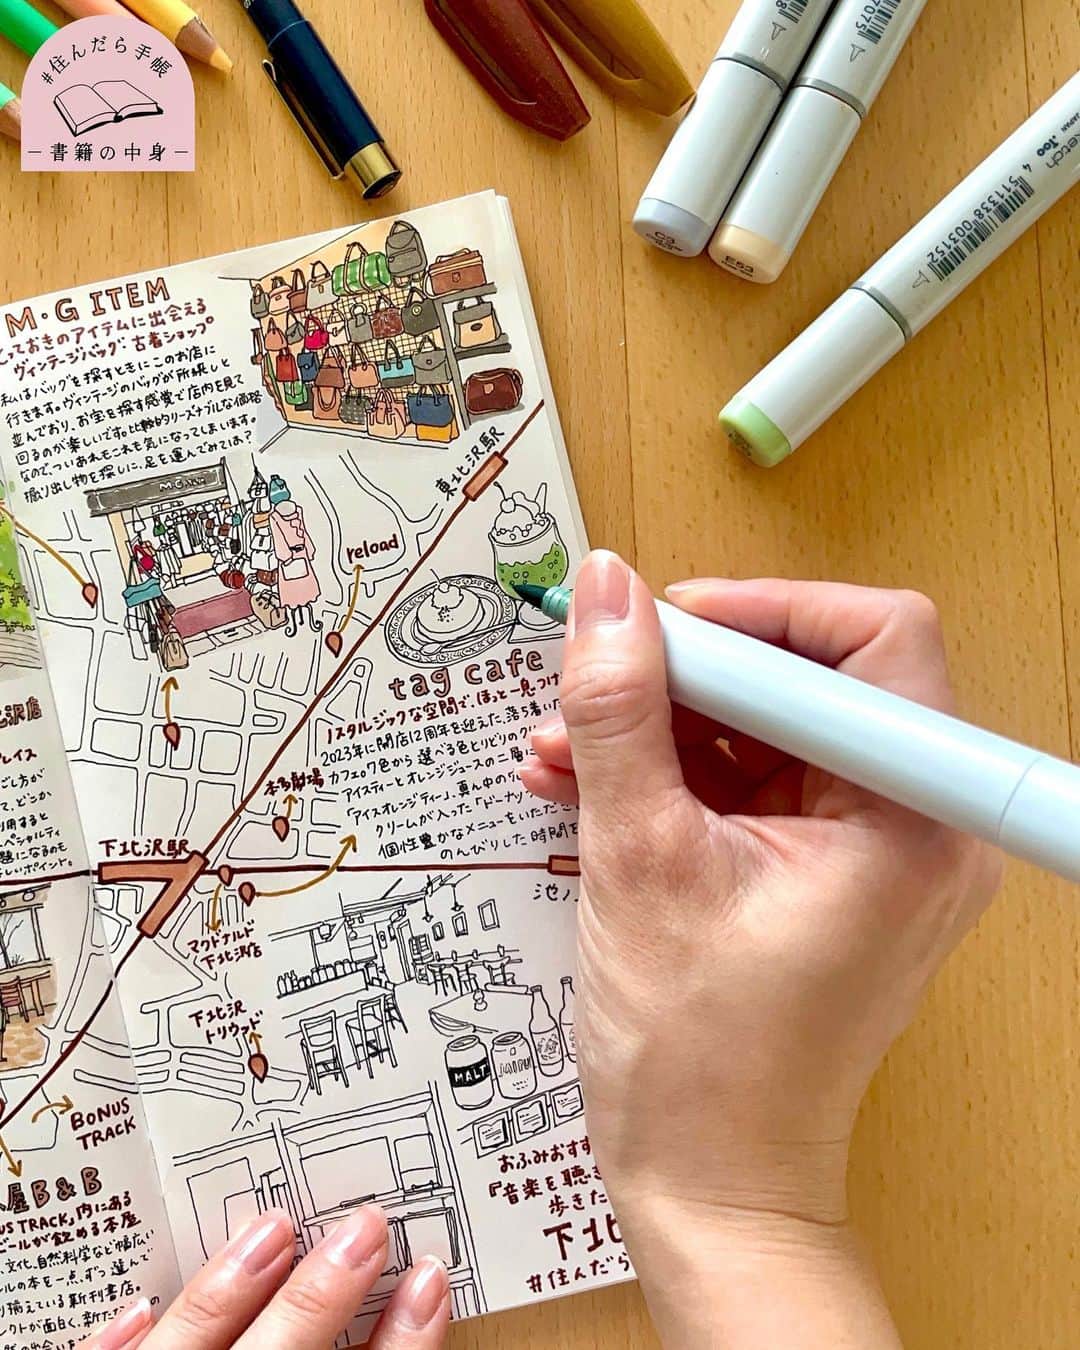 #住んだら手帳
－書籍の中身－
C3
E53
7075
sketch
JAPAN .Too
4 511338 003152
M・G ITEM
とっておきのアイテムに出会える
ヴィンテージバッグ・古着ショップ
私はバッグを探すときにこのお店に
行きます。ヴィンテージのバッグが所狭しと
並んでおり、お宝を探す感覚で店内を見て
回るのが楽しいです。比較的リーズナブルな価格
なので、ついあれもこれも気になってしまいます。
掘り出し物を探しに、足を運んでみては?
東北沢駅
reload
tag cafe
ノスタルジックな空間で、ほっと一息つけ
2023年に開店12周年を迎えた、落ち着いた
カフェ。7色から選べる色とりどりのクリ
アイスティーとオレンジジュースの二層に
「アイスオレンジティー」、真ん中の
クリームが入った「ドーナツ
個性豊かなメニューをいただき
のんびりした時間を
本多劇場
下北沢駅
池ノ
マクドナルド
下北沢店
下北沢
トリウッド
MALT
JAIPUR
BONUS
TRACK
おふみおすす
『音楽を聴き
歩きた
下北
#住んだら
北沢店
プレイス
ごし方が
て、どこか
利用すると
スペシャルティ
題になるのも
しいポイント。
屋 B&B
US TRACK」内にある
ビールが飲める本屋
、文化、自然科学など幅広い
ルの本を一点ずつ選んで
り揃えている新刊書店。
レクトが面白く、新たな